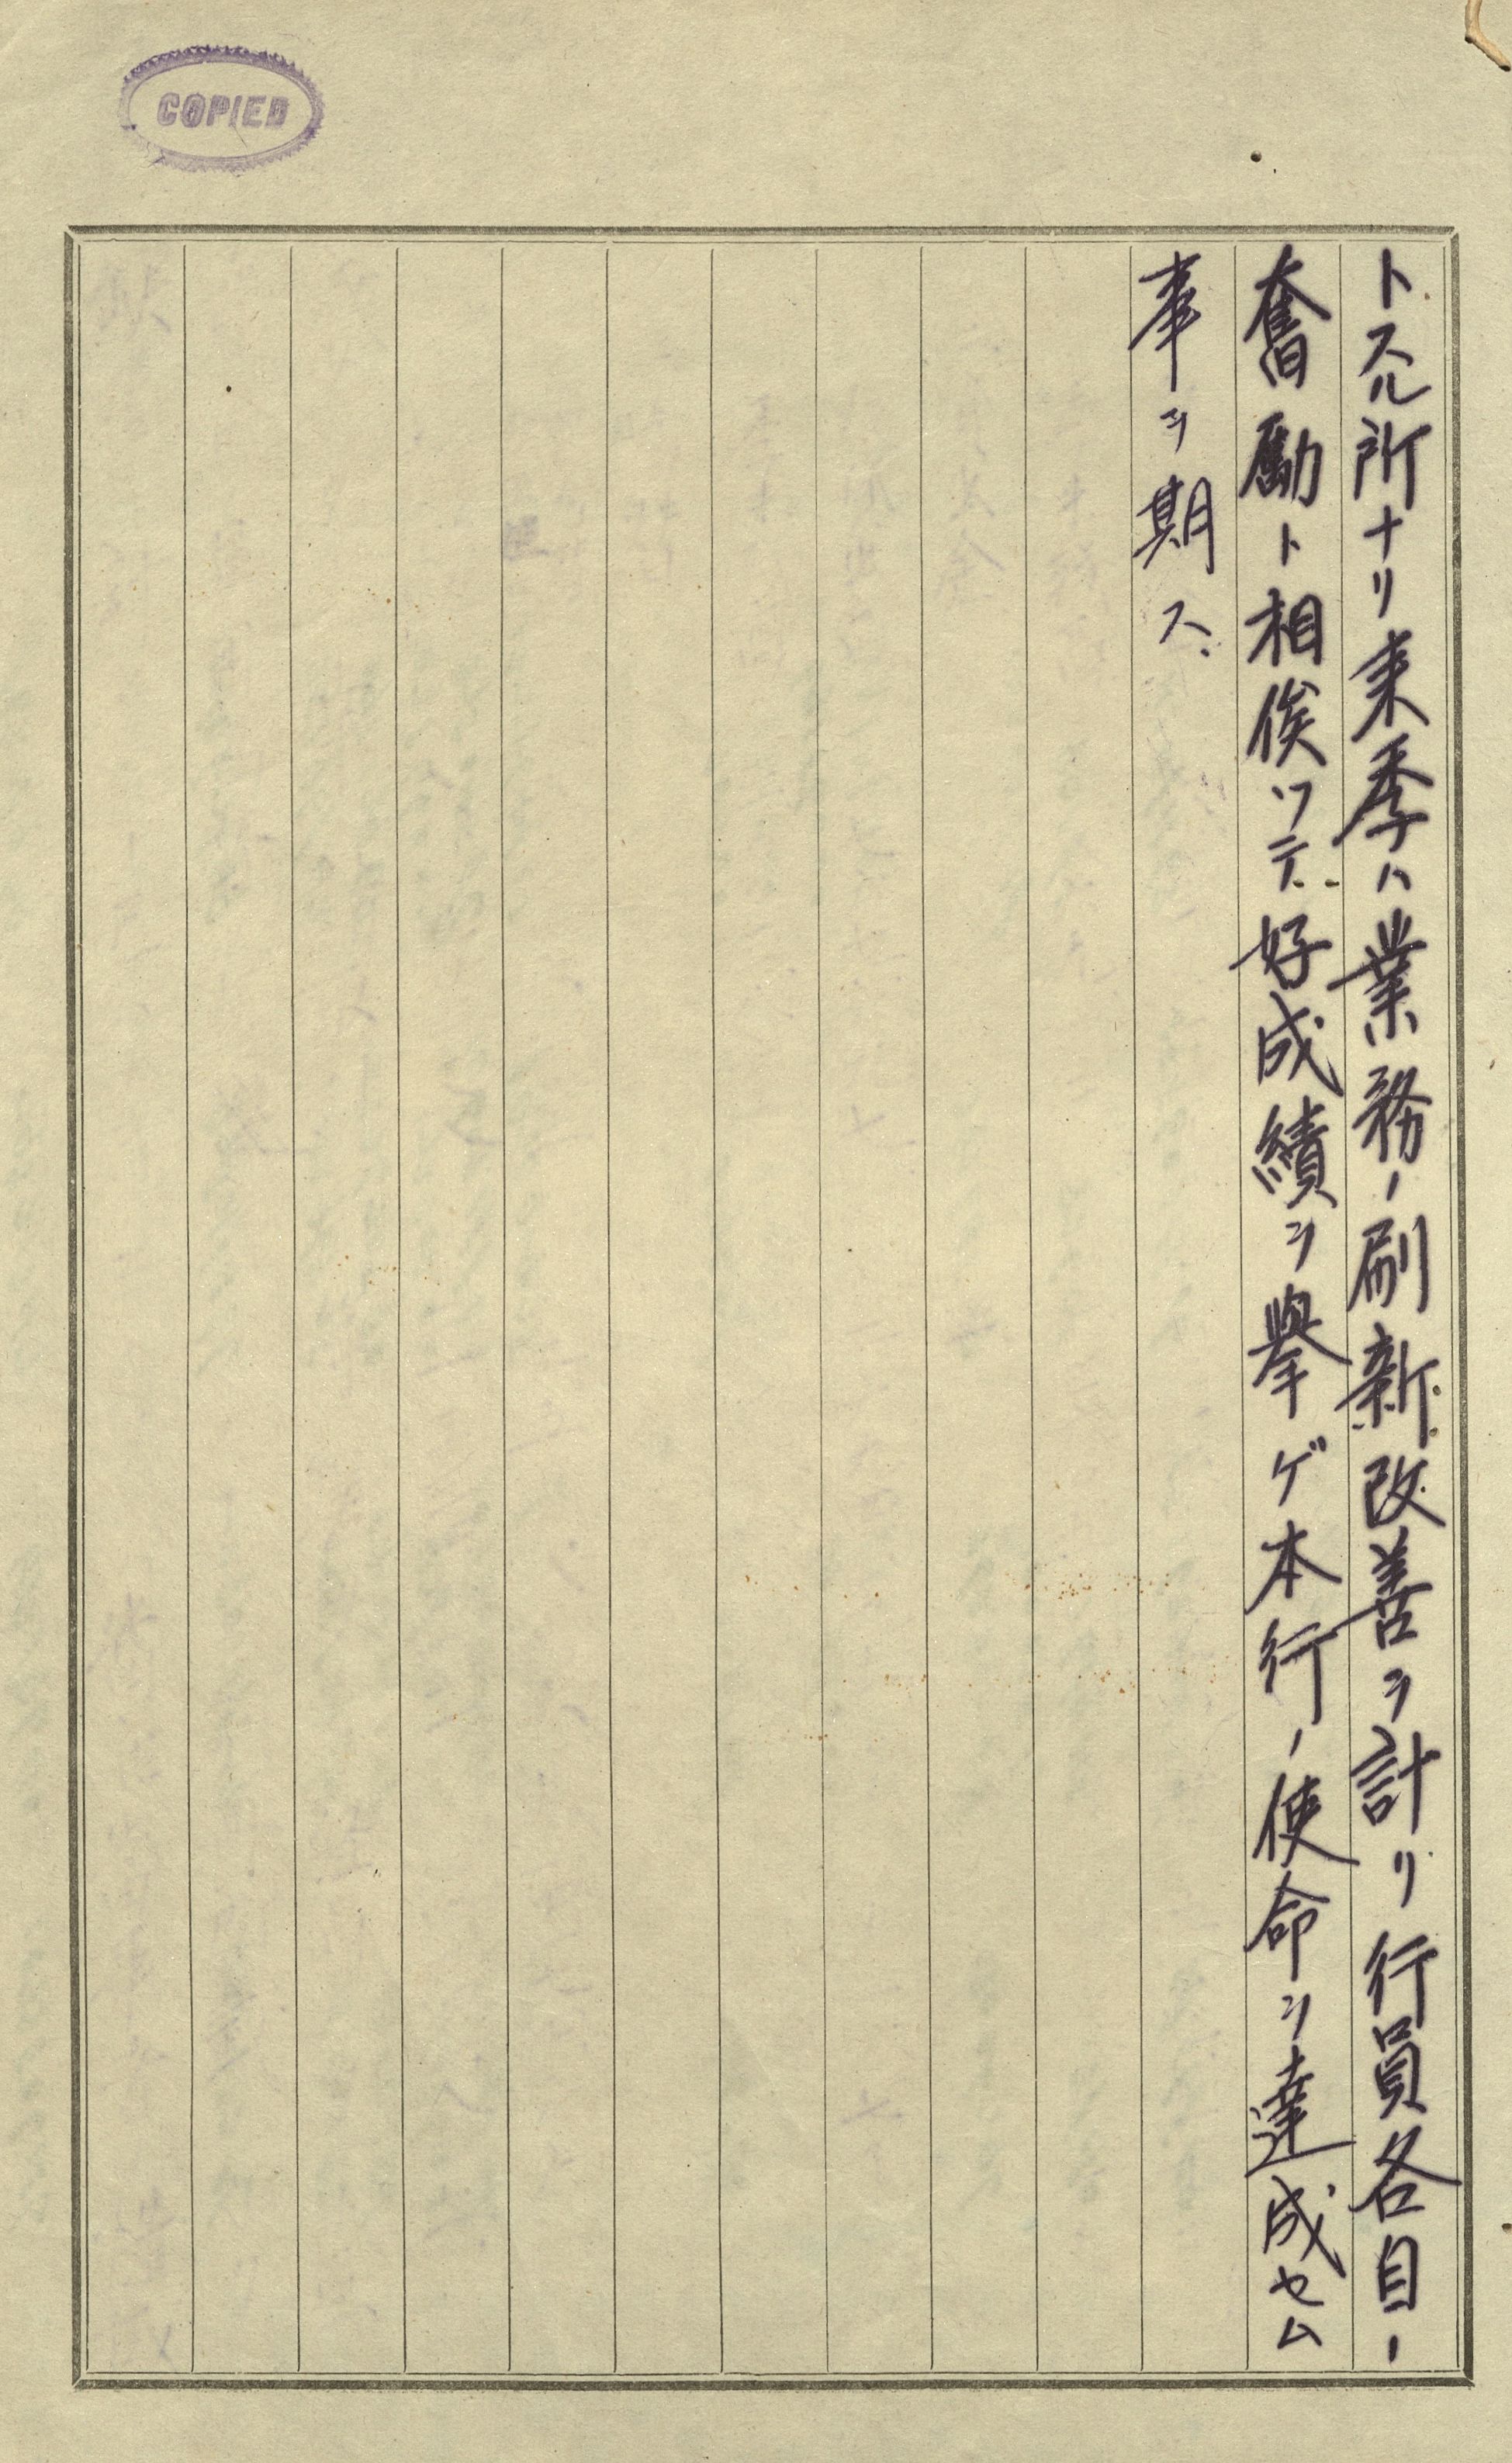 COPIED
トスル所ナリ来季ハ業務ノ刷新改善ヲ計リ行員各自ノ
奮励ト相俟ツテ好成績ヲ挙ゲ本行ノ使命ヲ達成セム
事ヲ期ス